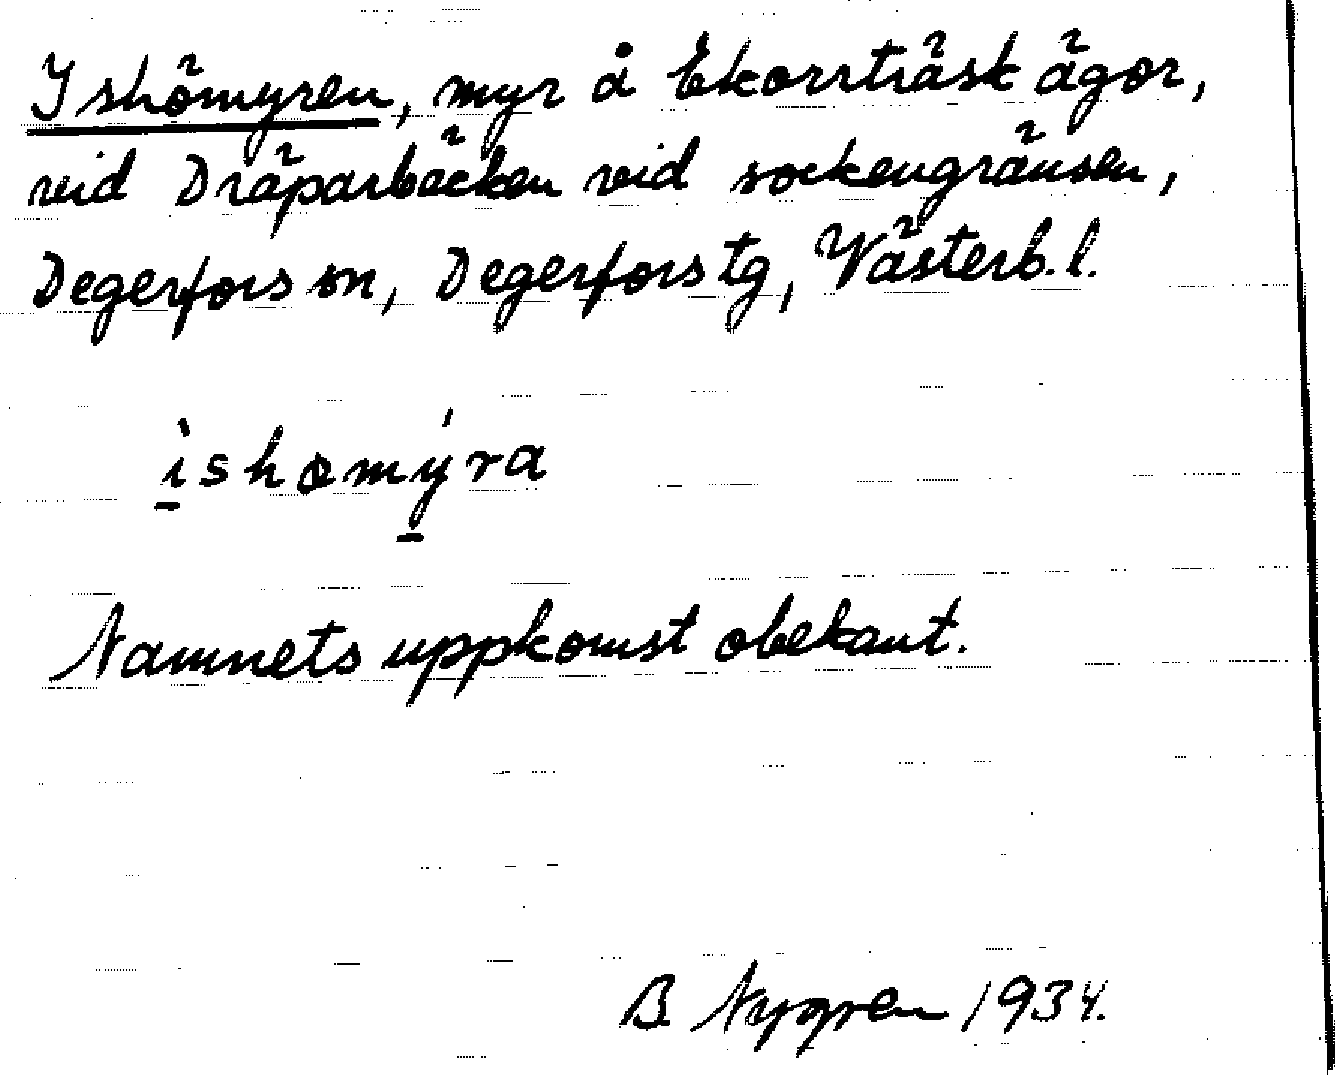 Ishömyren, myr å Ekorrträsk ägor,
vid Dräparbäcken vid sockengränsen,
Degerfors sn, Degerfors tg, Västerb. l.
ìshomýra
Namnets uppkomst obekant.
B. Nygren 1934.